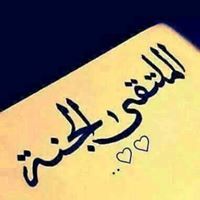 الملتقى الجنة